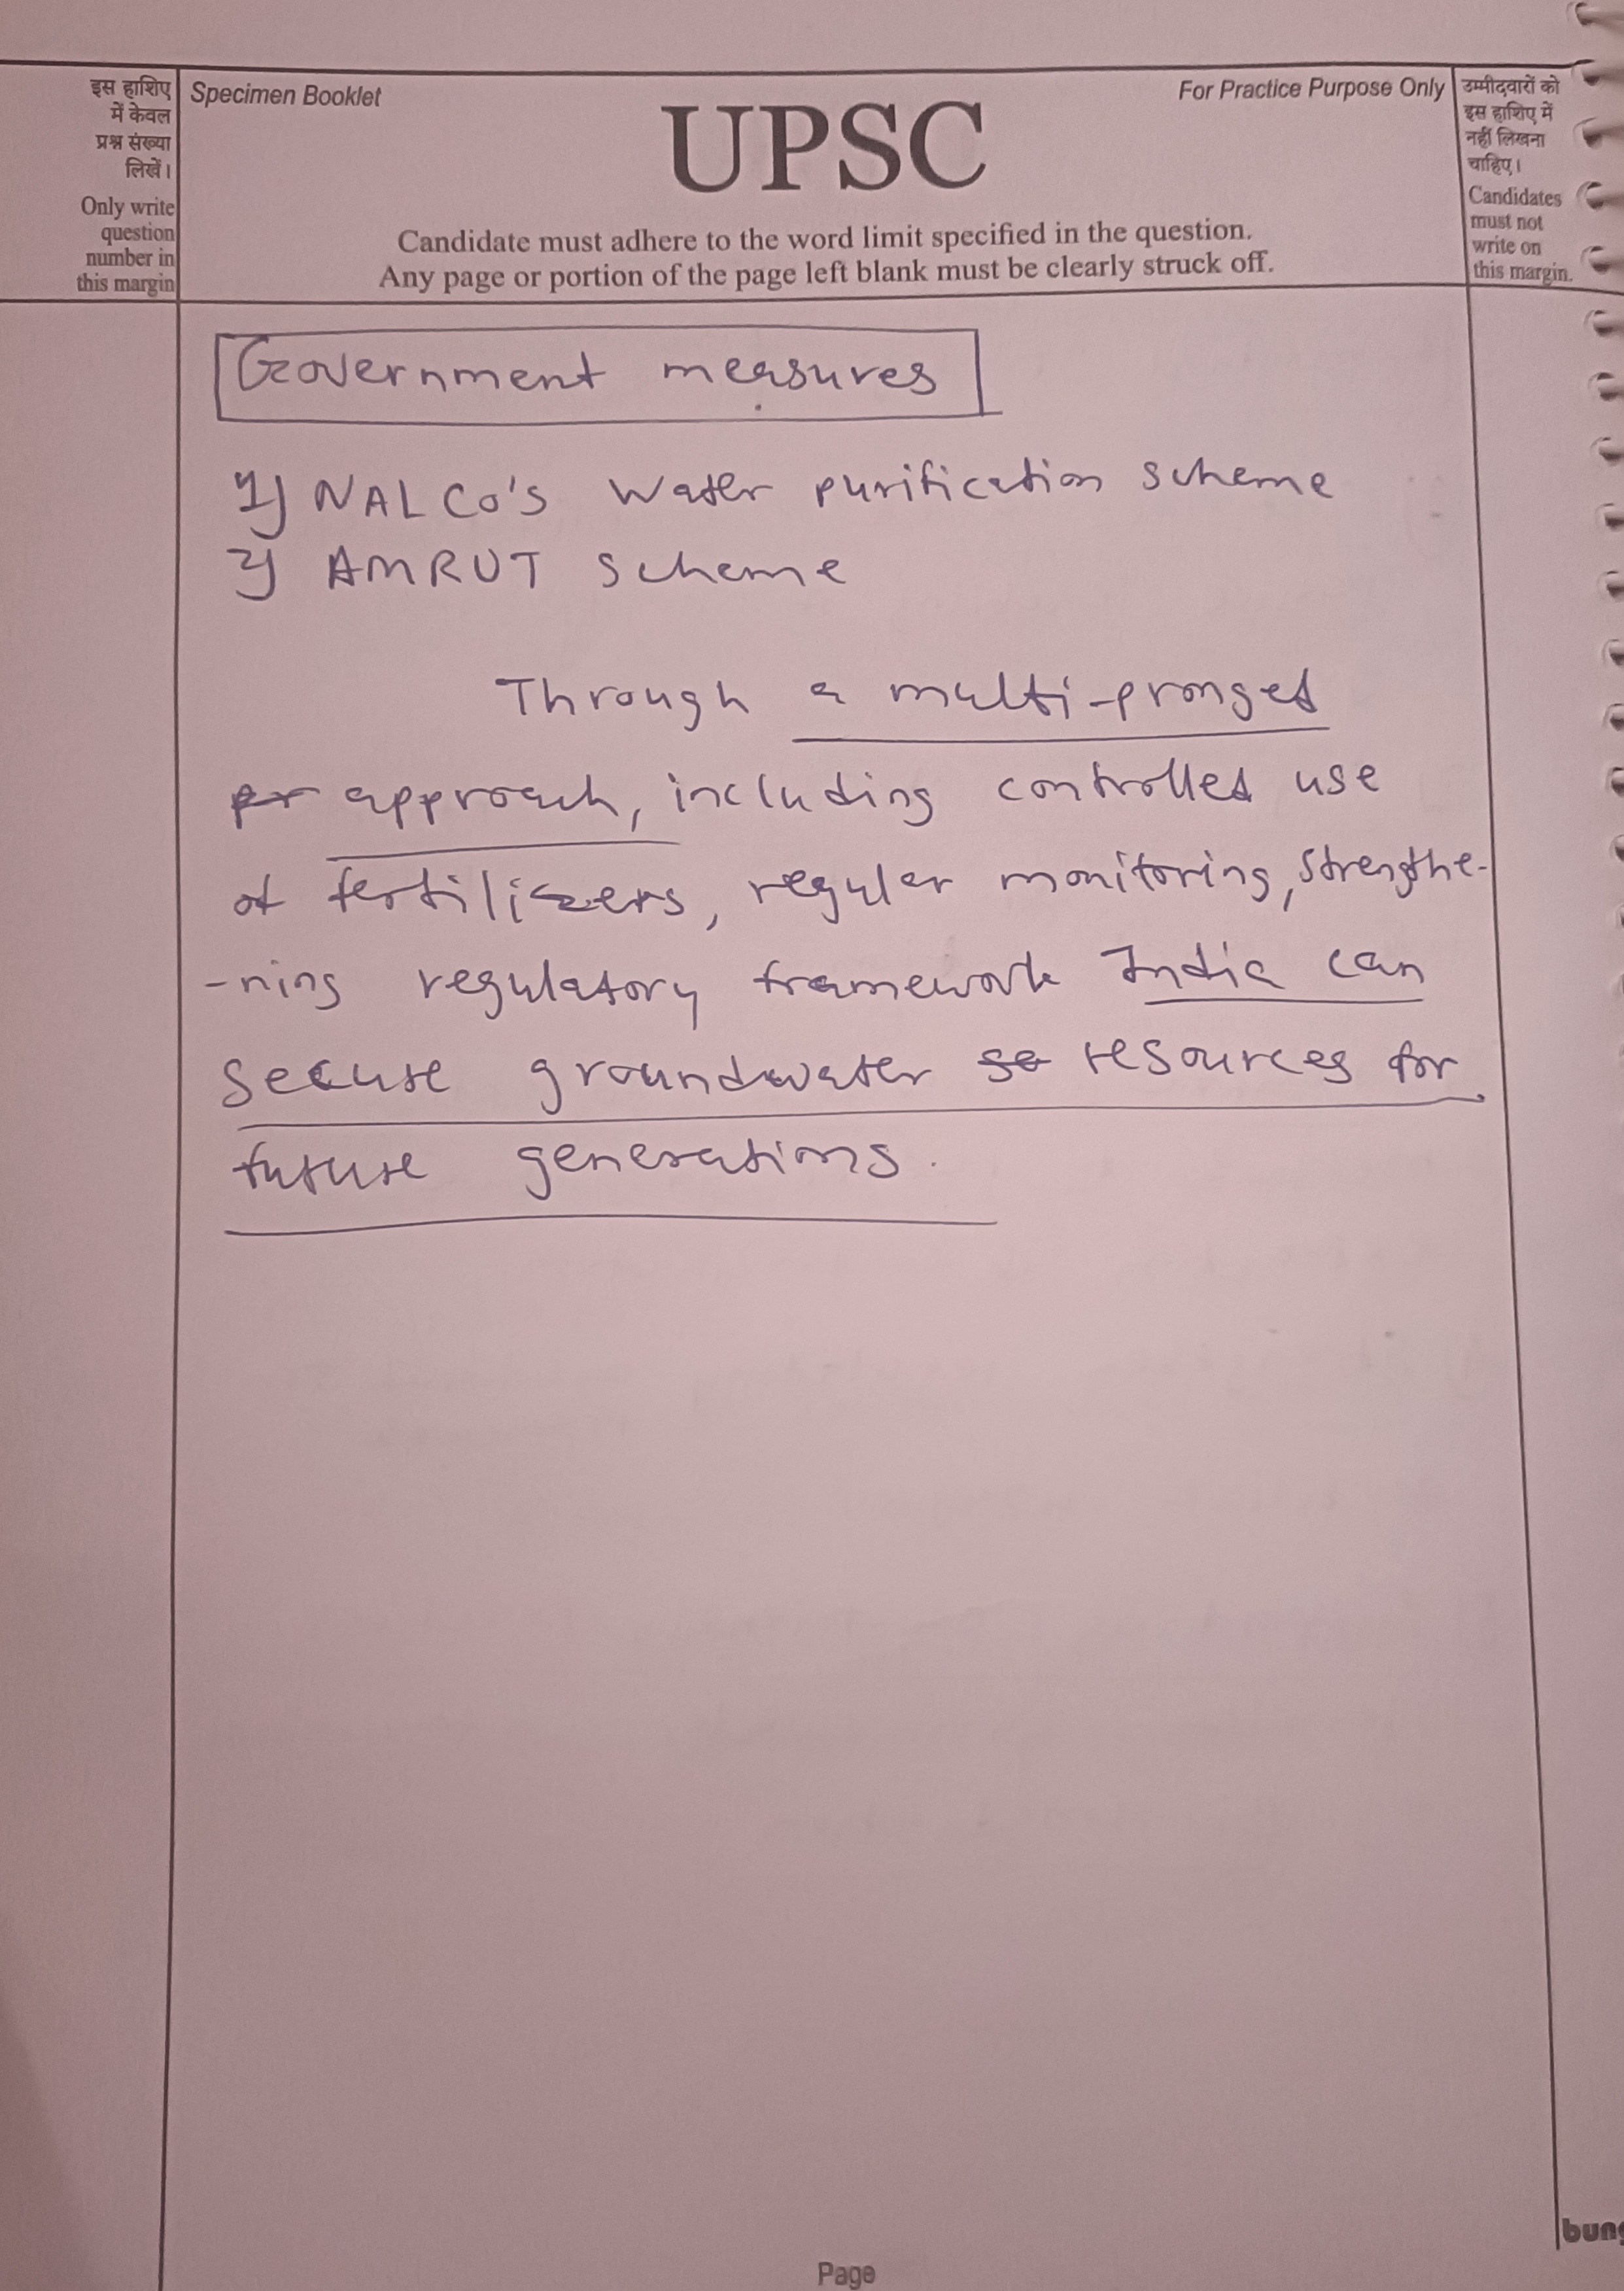 इस हाशिए
में केवल
प्रश्न संख्या
लिखें।
Only write
question
number in
this margin
Specimen Booklet
For Practice Purpose Only
UPSC
Candidate must adhere to the word limit specified in the question.
Any page or portion of the page left blank must be clearly struck off.
उम्मीदवारों को
इस हाशिए में
नहीं लिखना
चाहिए।
Candidates
must not
write on
this margin.
Government measures
1) NALCO's Water purification scheme
2) AMRUT scheme
Through a multi-pronged
approach, including controlled use
of fertilizers, regular monitoring, strengthe-
-ning regulatory framework India can
secure groundwater resources for
future generations.
Page